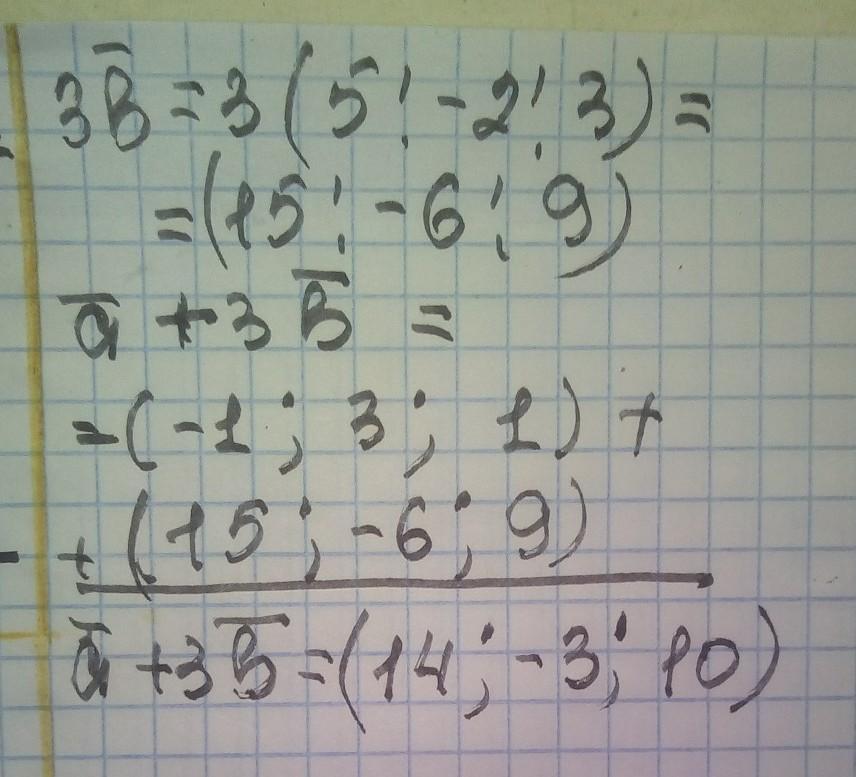 3b̄ = 3 (5; -2; 3) =
= (15; -6; 9)
ā + 3b̄ =
= (-1; 3; 1) +
+ (15; -6; 9)
ā + 3b̄ = (14; -3; 10)